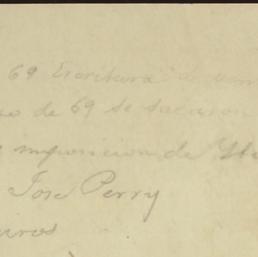 69 Escritura de
de 69 se sacaron
imposicion de
Jose Perry